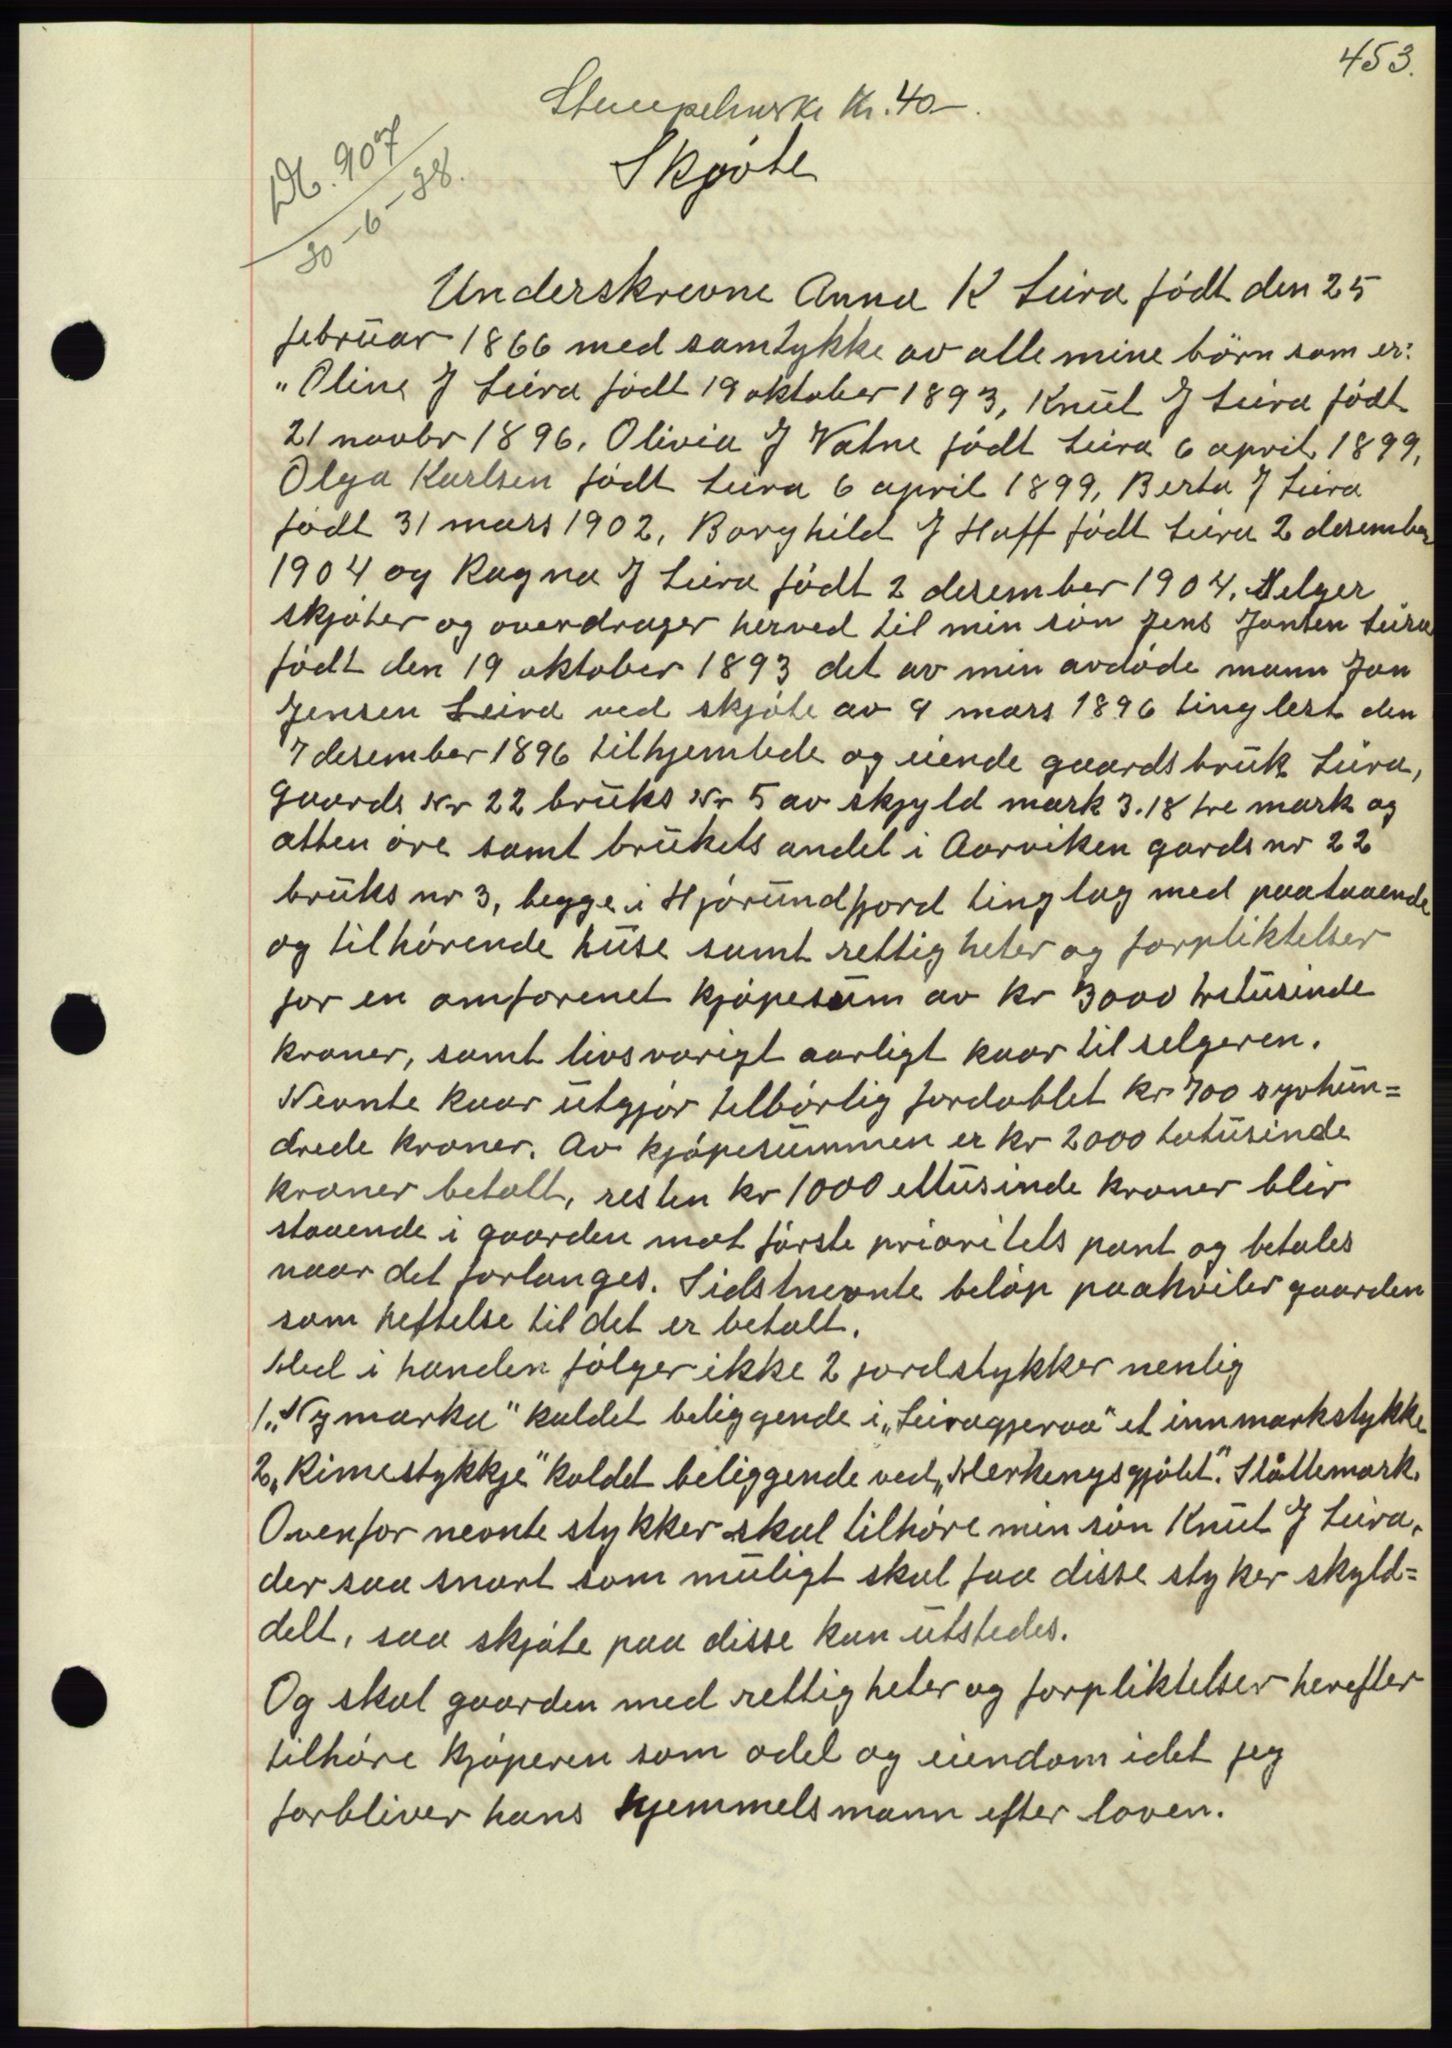 453.
Stempelmerke kr. 40 -.
Skjøte
Nr. 907
30 - 6 - 38.
Underskrevne Anna K Leira født den 25
februar 1866 med samtykke av alle mine børn som er:
"Oline J Leira født 19 oktober 1893, Knut J Leira født
21 novbr 1896. Olivia J Vatne født Leira 6 april 1899,
Olga Karlsen født Leira 6 april 1899, Berta J Leira
født 31 mars 1902, Borghild J Hoff født Leira 2 desember
1904 og Ragna J Leira født 2 desember 1904. Selger
skjøter og overdrager herved til min søn Jens Jonsen Leira
født den 19 oktober 1893 det av min avdøde mann Jon
Jensen Leira ved skjøte av 9 mars 1896 tinglest den
7 desember 1896 tilhjemlede og eiende gaardsbruk Leira,
Gaards Nr 22 bruks Nr 5 av skjyld mark 3.18 tre mark og
atten øre samt brukets andel i Aarviken gards nr 22
bruks nr 3, begge i Hjørundfjord tinglag med paastaaende
og tilhørende huse samt rettigheter og forpliktelser
for en omforenet kjøpesum av kr 3000 tretusinde
kroner, samt livsvarigt aarligt kaar til selgeren.
Nevnte kaar utgjør tilbørlig fordoblet kr 700 syvhun=
drede kroner. Av kjøpesummen er kr 2000 totusinde
kroner betalt, resten kr 1000 ettusinde kroner blir
staaende i gaarden mot første prioritets pant og betales
naar det forlanges. Sidstnevnte beløp paahviler gaarden
som heftelse til det er betalt.
Med i handen følger ikke 2 jordstykker nemlig
1. "Nymarka" kaldet beliggende i "Leiragjeraa" et innmarkstykke
2. "Rimestykkje" kaldet beliggende ved "Merkenysgjølet". Slåttemark.
Ovenfor nevnte stykker skal tilhøre min søn Knut J Leira,
der saa snart som muligt skal faa disse styker skyld=
delt, saa skjøte paa disse kan utstedes.
Og skal gaarden med rettigheter og forpliktelser herefter
tilhøre kjøperen som odel og eiendom idet jeg
forbliver hans hjemmelsmann efter loven.